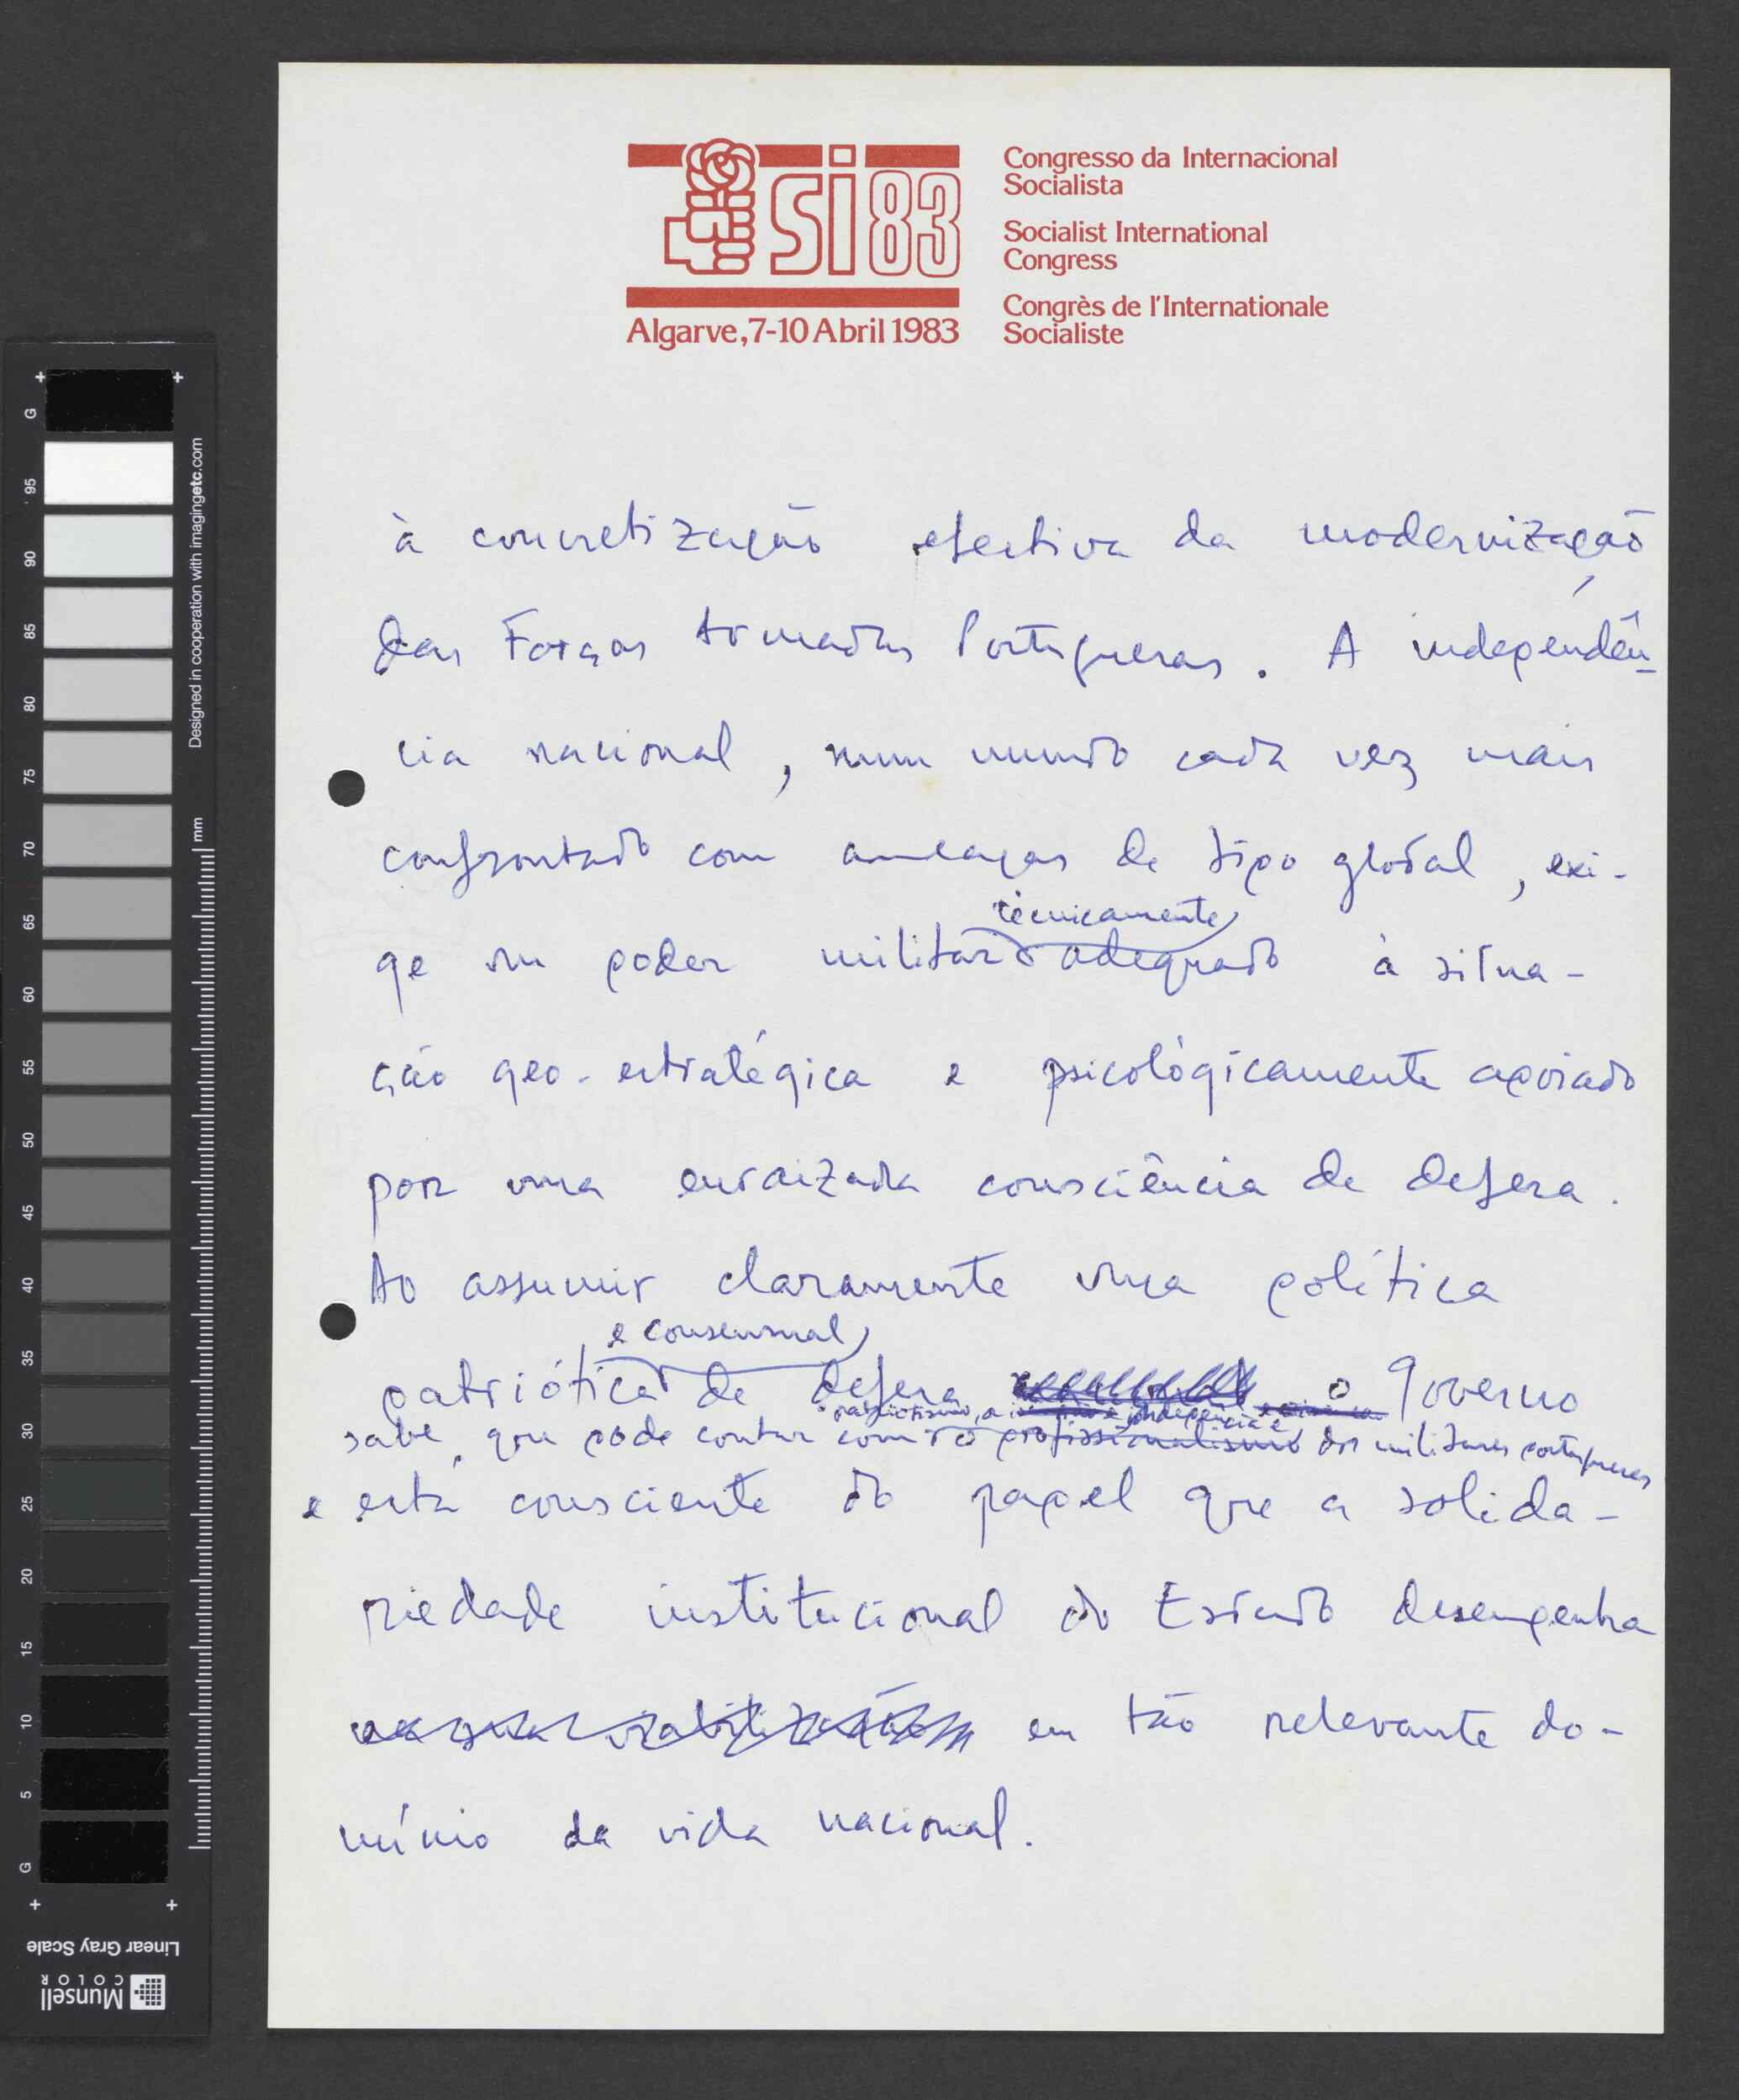 SI 83
Algarve, 7-10 Abril 1983
Congresso da Internacional
Socialista
Socialist International
Congress
Congrès de l'Internationale
Socialiste
à concretização efectiva da modernização
das Forças Armadas Portuguesas. A independên-
cia nacional, num mundo cada vez mais
confrontado com ameaças de tipo global, exi-
técnicamente
ge um poder militar adequado à situa-
ção geo-estratégica e psicológicamente apoiado
por uma enraizada consciência de defesa.
Ao assumir claramente uma política
e consensual
patriótica de defesa o Governo
patriotismo, a independência e
sabe que pode contar com o profissionalismo dos militares portugueses
e está consciente do papel que a solida-
riedade institucional do Estado desempenha
na sua viabilização em tão relevante do-
mínio da vida nacional.
G
95
90
85
80
75
70
65
60
55
50
45
40
35
30
25
20
15
10
5
G
mm
Designed in cooperation with imagingetc.com
Linear Gray Scale
Munsell
COLOR